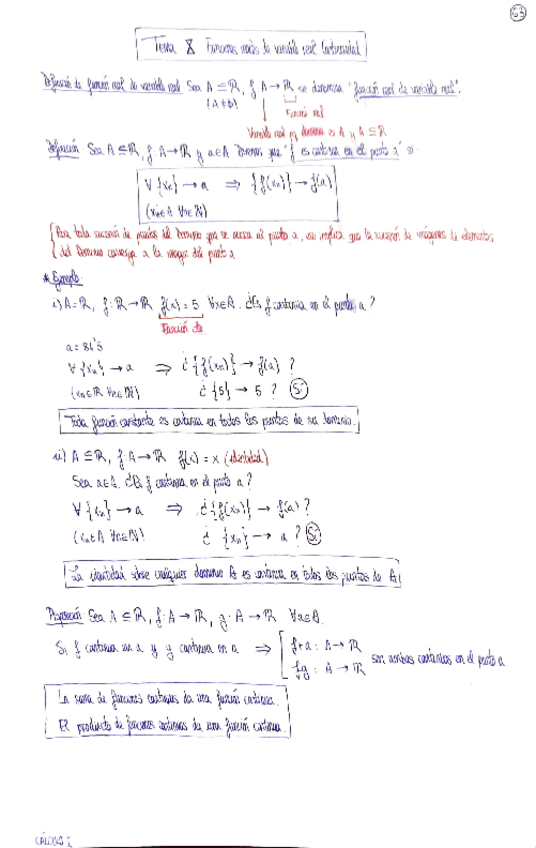 63
Tema 8 Funciones reales de variable real. Continuidad
Definición de función real de variable real Sea A ⊆ ℝ, f: A → ℝ se denomina "función real de variable real".
(A ≠ ∅)
Función real
Variable real pq dominio es A y A ⊆ ℝ
Definición Sea A ⊆ ℝ, f: A → ℝ y a∈A Diremos que "f es continua en el punto a" si
∀ {xₙ} → a ⇒ {f(xₙ)} → f(a)
(xₙ∈A ∀n∈ℕ)
Para toda sucesión de puntos del Dominio que se acerca al punto a, eso implica que la sucesión de imágenes de elementos
del Dominio converge a la imagen del punto a
* Ejemplo
i) A = ℝ, f: ℝ → ℝ f(x) = 5 ∀x∈A. ¿Es f continua en el punto a?
Función cte
a = 84'5
∀ {xₙ} → a ⇒ ¿{f(xₙ)} → f(a)?
(xₙ∈ℝ ∀n∈ℕ) ¿{5} → 5? Sí
Toda función constante es continua en todos los puntos de su dominio.
ii) A ⊆ ℝ, f: A → ℝ f(x) = x (identidad)
Sea a∈A. ¿Es f continua en el punto a?
∀ {xₙ} → a ⇒ ¿{f(xₙ)} → f(a)?
(xₙ∈A ∀n∈ℕ) ¿{xₙ} → a? Sí
La identidad sobre cualquier dominio A es continua en todos los puntos de A
Proposición Sea A ⊆ ℝ, f: A → ℝ, g: A → ℝ ∀a∈A.
Si f continua en a y g continua en a ⇒ f+g: A → ℝ
f·g: A → ℝ son ambas continuas en el punto a
La suma de funciones continuas da una función continua.
El producto de funciones continuas da una función continua.
CÁLCULO I